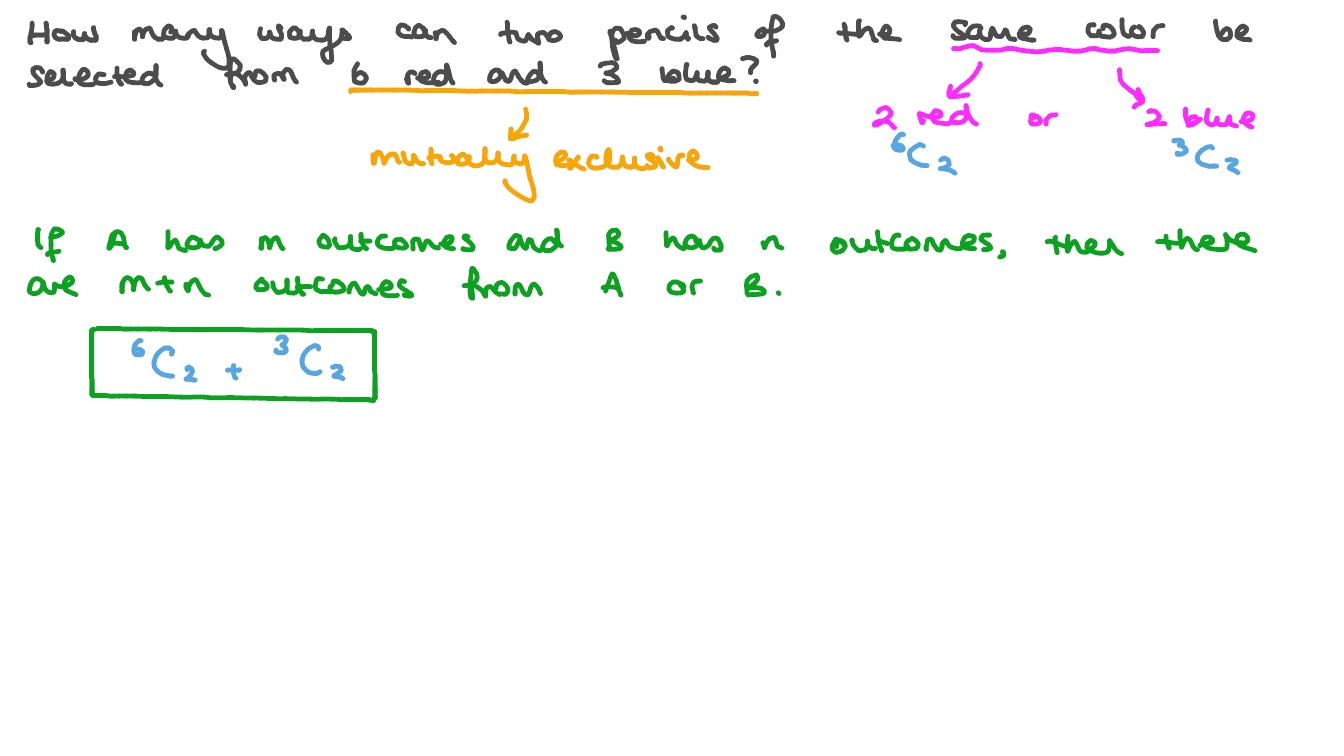 How many ways can two pencils of the same color be
selected from 6 red and 3 blue?
2 red or 2 blue
⁶C₂ ³C₂
mutually exclusive
If A has m outcomes and B has n outcomes, then there
are m+n outcomes from A or B.
⁶C₂ + ³C₂